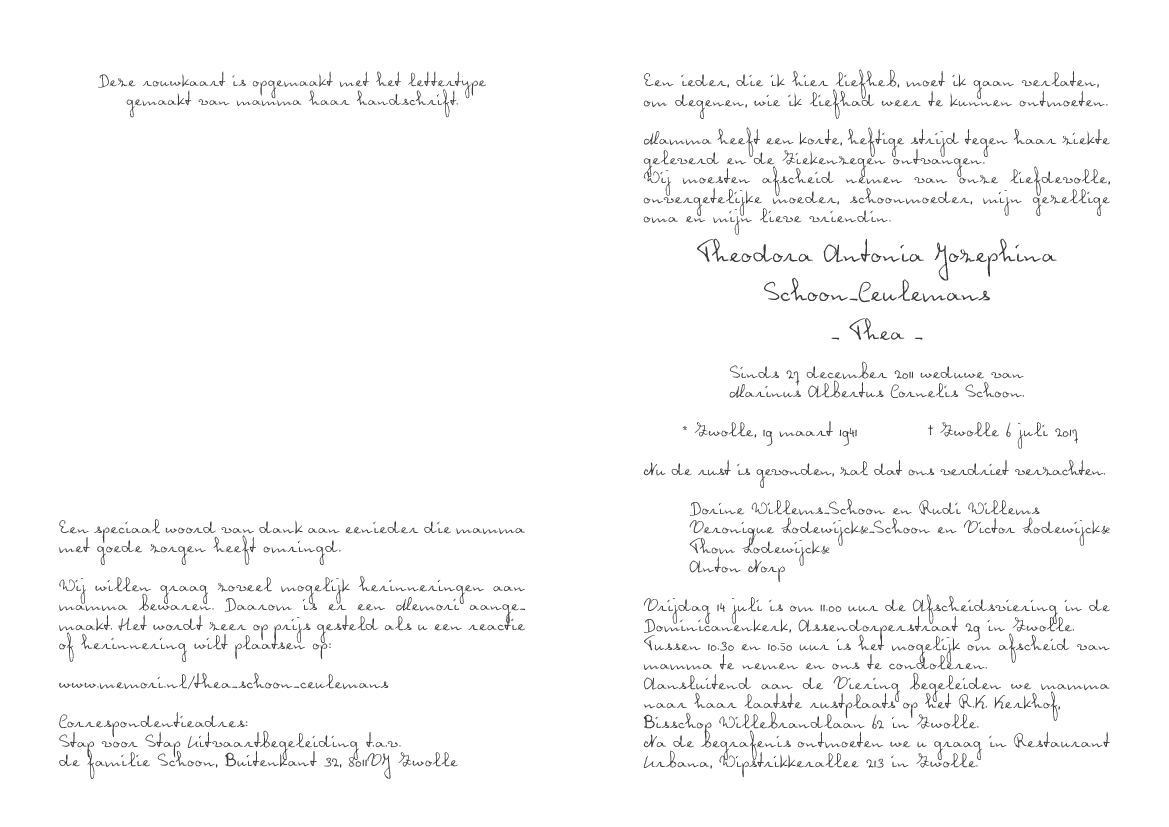 Deze rouwkaart is opgemaakt met het lettertype
gemaakt van mamma haar handschrift.
Een speciaal woord van dank aan eenieder die mamma
met goede zorgen heeft omringd.
Wij willen graag zoveel mogelijk herinneringen aan
mamma bewaren. Daarom is er een Memori aange-
maakt. Het wordt zeer op prijs gesteld als u een reactie
of herinnering wilt plaatsen op:
www.memori.nl/thea-schoon-ceulemans
Correspondentieadres:
Stap voor Stap Uitvaartbegeleiding t.a.v.
de familie Schoon, Buitenkant 32, 8011VJ Zwolle
Een ieder, die ik hier liefheb, moet ik gaan verlaten,
om degenen, wie ik liefhad weer te kunnen ontmoeten.
Mamma heeft een korte, heftige strijd tegen haar ziekte
geleverd en de Ziekenzegen ontvangen.
Wij moesten afscheid nemen van onze liefdevolle,
onvergetelijke moeder, schoonmoeder, mijn gezellige
oma en mijn lieve vriendin.
Theodora Antonia Jozephina
Schoon-Ceulemans
- Thea -
Sinds 27 december 2011 weduwe van
Marinus Albertus Cornelis Schoon.
* Zwolle, 19 maart 1941 † Zwolle 6 juli 2017
Nu de rust is gevonden, zal dat ons verdriet verzachten.
Dorine Willems-Schoon en Rudi Willems
Veronique Lodewijckse-Schoon en Victor Lodewijckse
Thom Lodewijckse
Anton Norp
Vrijdag 14 juli is om 11.00 uur de Afscheidsviering in de
Dominicanenkerk, Assendorperstraat 29 in Zwolle.
Tussen 10.30 en 10.50 uur is het mogelijk om afscheid van
mamma te nemen en ons te condoleren.
Aansluitend aan de Viering begeleiden we mamma
naar haar laatste rustplaats op het R.K. Kerkhof,
Bisschop Willebrandlaan 62 in Zwolle.
Na de begrafenis ontmoeten we u graag in Restaurant
Urbana, Wipstrikkerallee 213 in Zwolle.